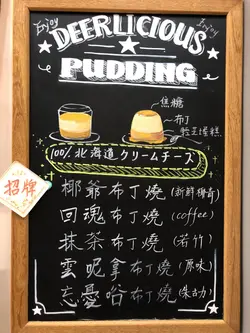 Enjoy
Enjoy
DEERLICIOUS
PUDDING
焦糖
布丁
100% 北海道クリームチーズ
招牌
椰爺布丁燒 (新鮮椰香)
回魂布丁燒 (coffee)
抹茶布丁燒 (若竹)
雲呢拿布丁燒 (原味)
忘憂咕布丁燒 (朱古力)